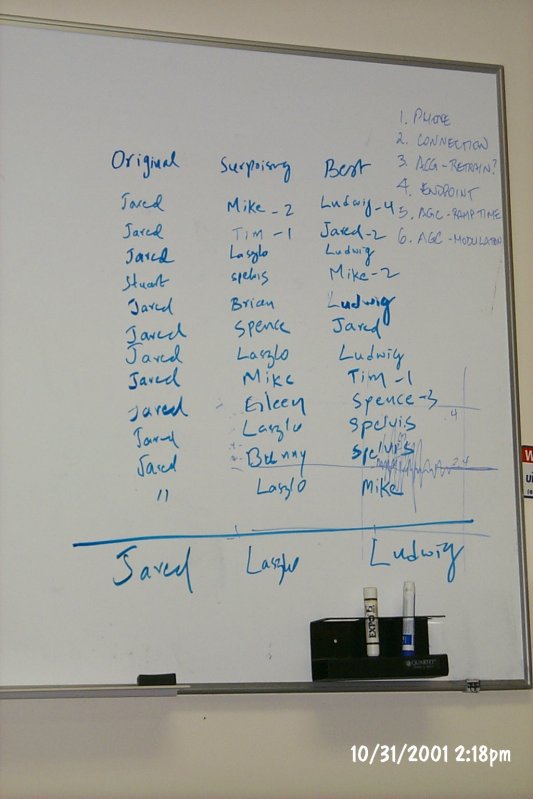 1. PHONE
2. CONNECTION
3. ACG-RETRAIN?
4. ENDPOINT
5. AGC-RAMP TIME
6. AGC-MODULATION
Original Surpoising Best
Jared Mike-2 Ludwig-4
Jared Tim-1 Jared-2
Jared Laszlo Ludwig
Stuart spelvis Mike-2
Jared Brian Ludwig
Jared Spence Jared
Jared Laszlo Ludwig
Jared Mike Tim-1
Jared Eileen Spence-3
Jared Laszlo Spelvis
Jared Bunny Spelvis
" Laszlo Mike
.4
2.4
Jared Laszlo Ludwig
EXPO
QUARTET
10/31/2001 2:18pm